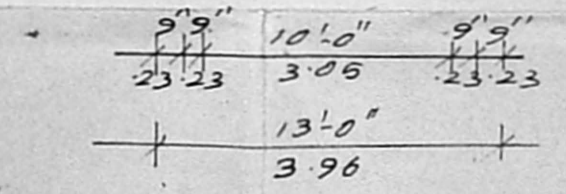 9" 9" 10'-0" 9" 9"
.23 .23 3.05 .23 .23
13'-0"
3.96